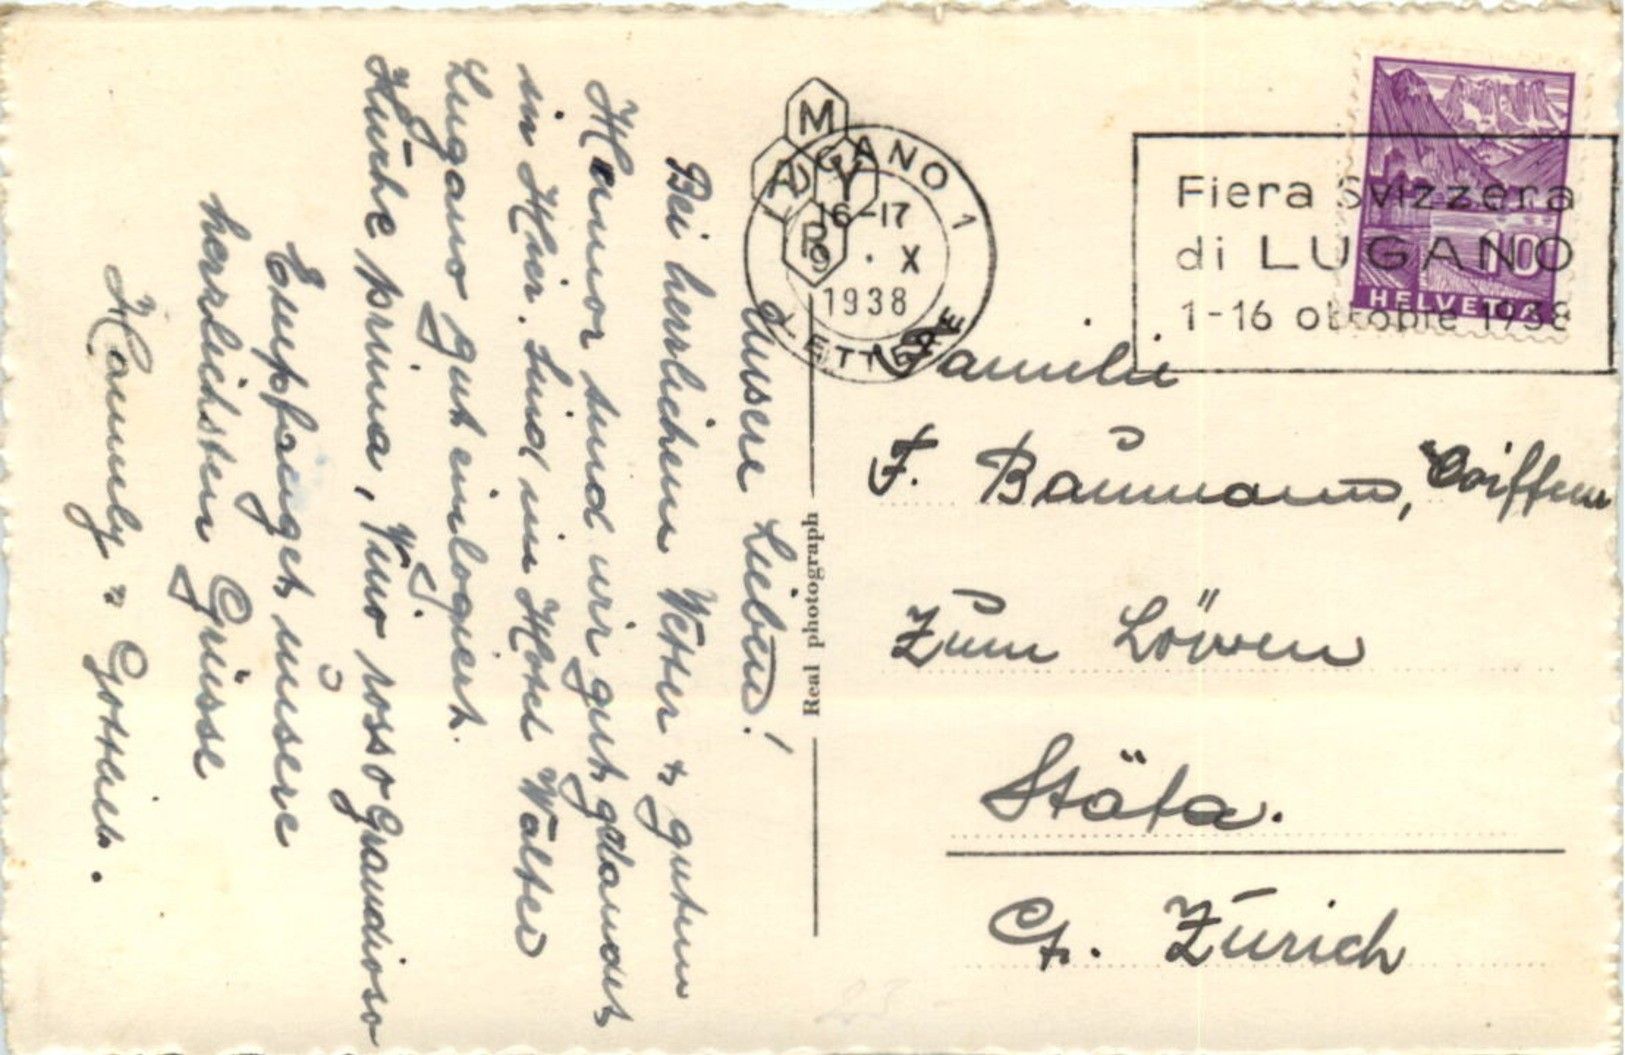 Unsere Lieben!
Bei herrlichem Wetter & gutem
Humor sind wir gut gelandet
in Hier. Sind im Hotel Walter
Lugano gut einlogiert.
Küche prima, Vino rosso grandioso
Empfanget unsere
herzlichsten Grüsse
Hanny & Gottlieb.
MARY
Real photograph
LUGANO 1
16-17
9. X
1938
LETTERE
Fiera Svizzera
di LUGANO
1-16 ottobre 1938
10
HELVETIA
Familie
F. Baumann, Coiffeur
Zum Löwen
Stäfa.
Ct. Zürich
23